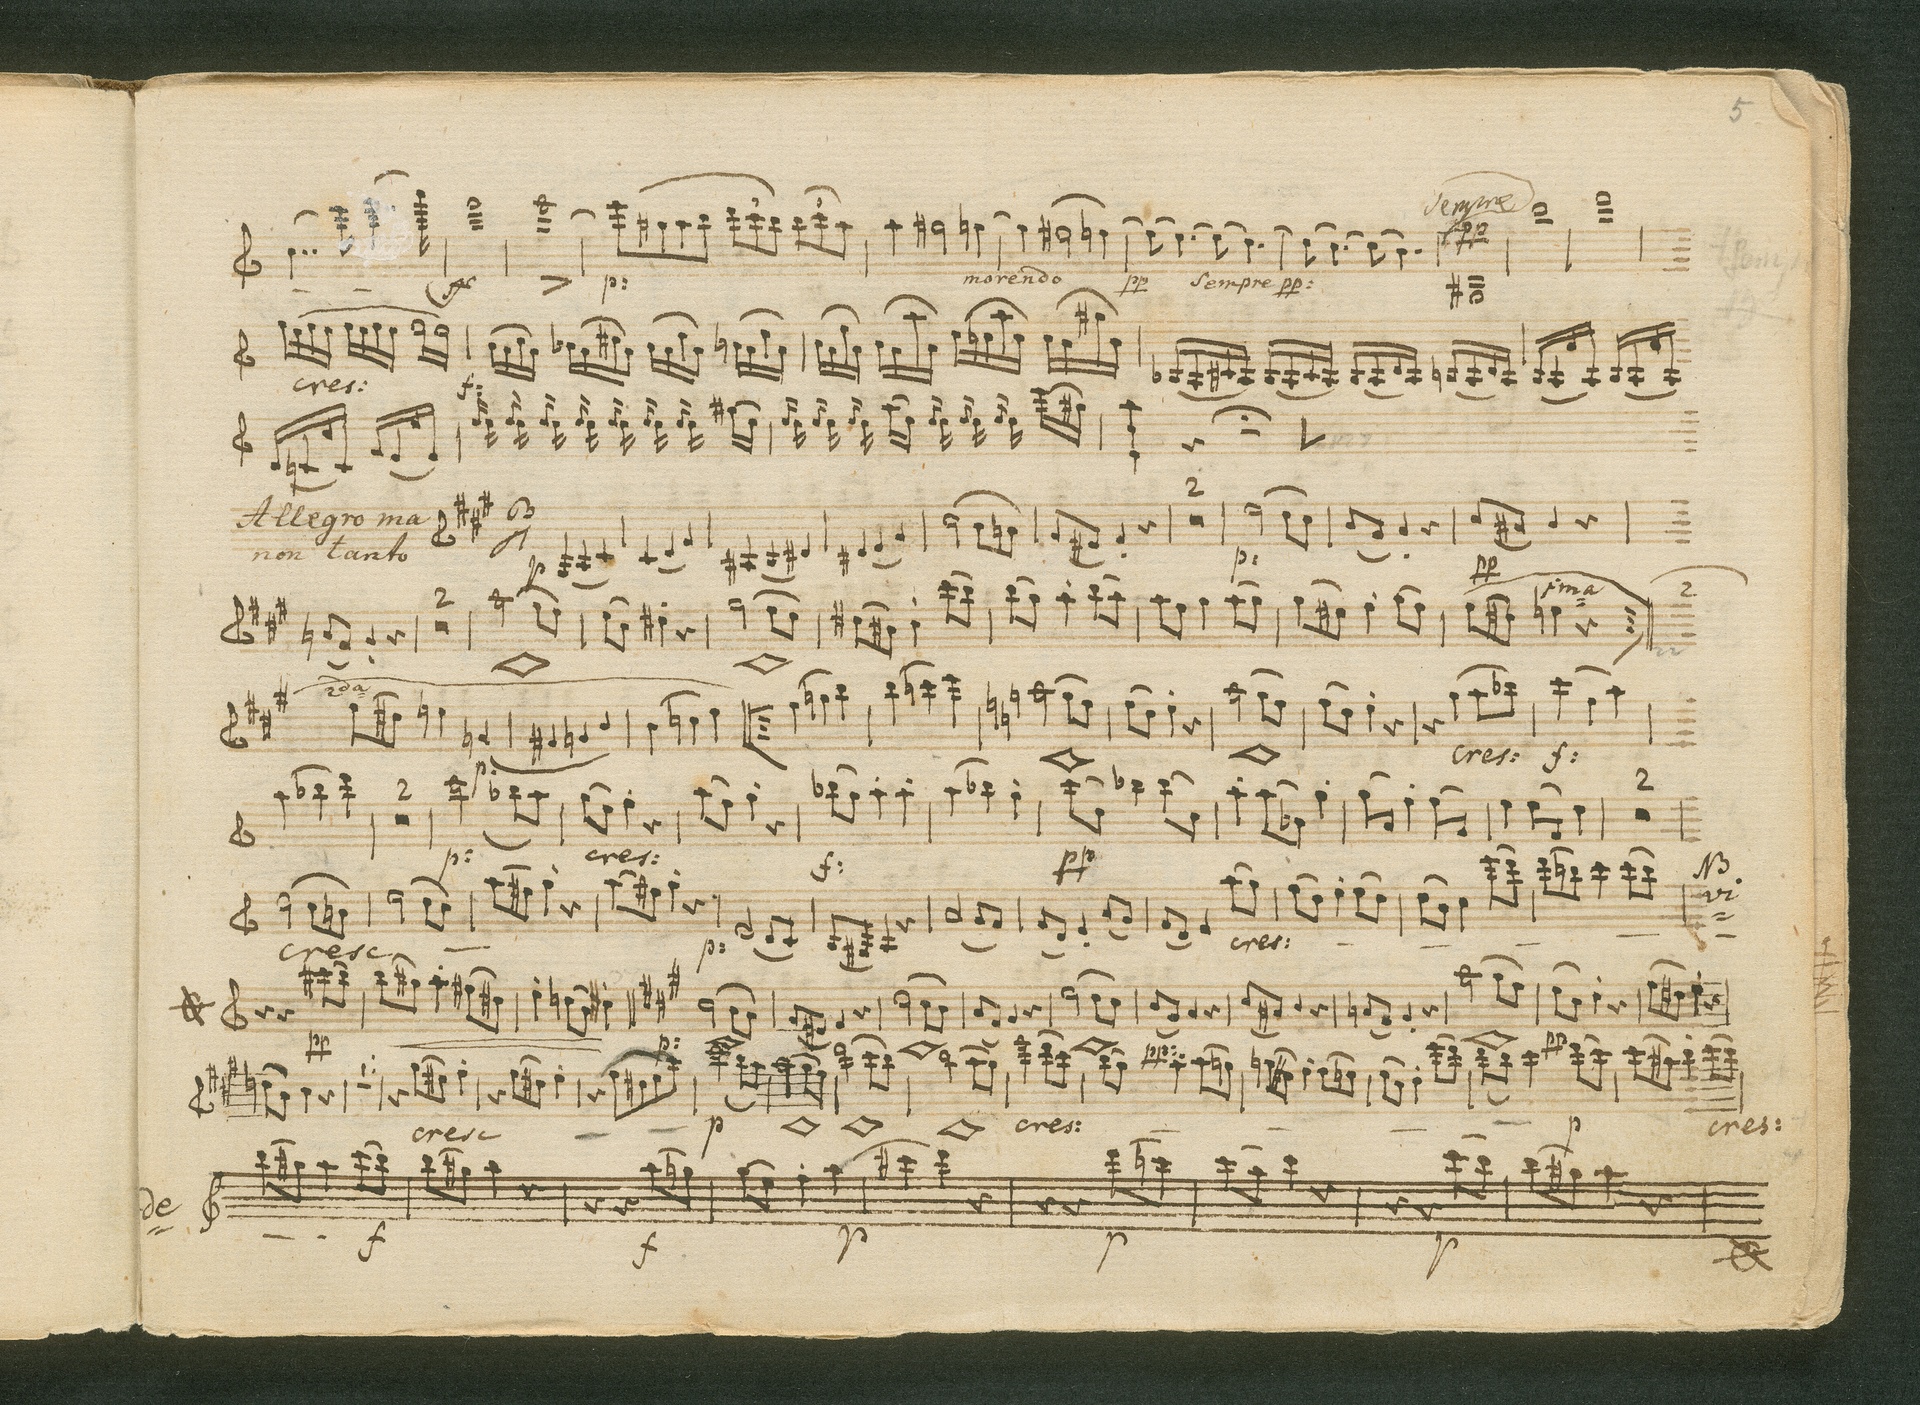 5
Sempre
pp
p: morendo pp Sempre pp:
cres: f:
Allegro ma
non tanto
2
p p: pp
2 ima 2
2da
p: cres: f:
2 2
p: cres: f: pp
NB.
vi
=
de
cresc p: cres:
pp p: pp: pp
cresc p cres: p cres:
de
f f p p p